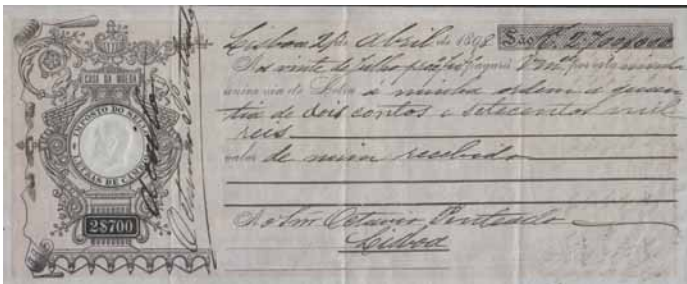 CASA DA MOEDA
IMPOSTO DO SELLO
LETRAS DE CAMBIO
2$700
Acceito
Octavio Penteado
Lisboa 21 de Abril de 1898 São R. 2.700$000
Aos vinte de Julho pagará V. por esta minha
unica via de Letra a minha ordem a quan
tia de dois contos e setecentos mil
reis
valor de mim recebido
Ao Snr Octavio Penteado
Lisboa